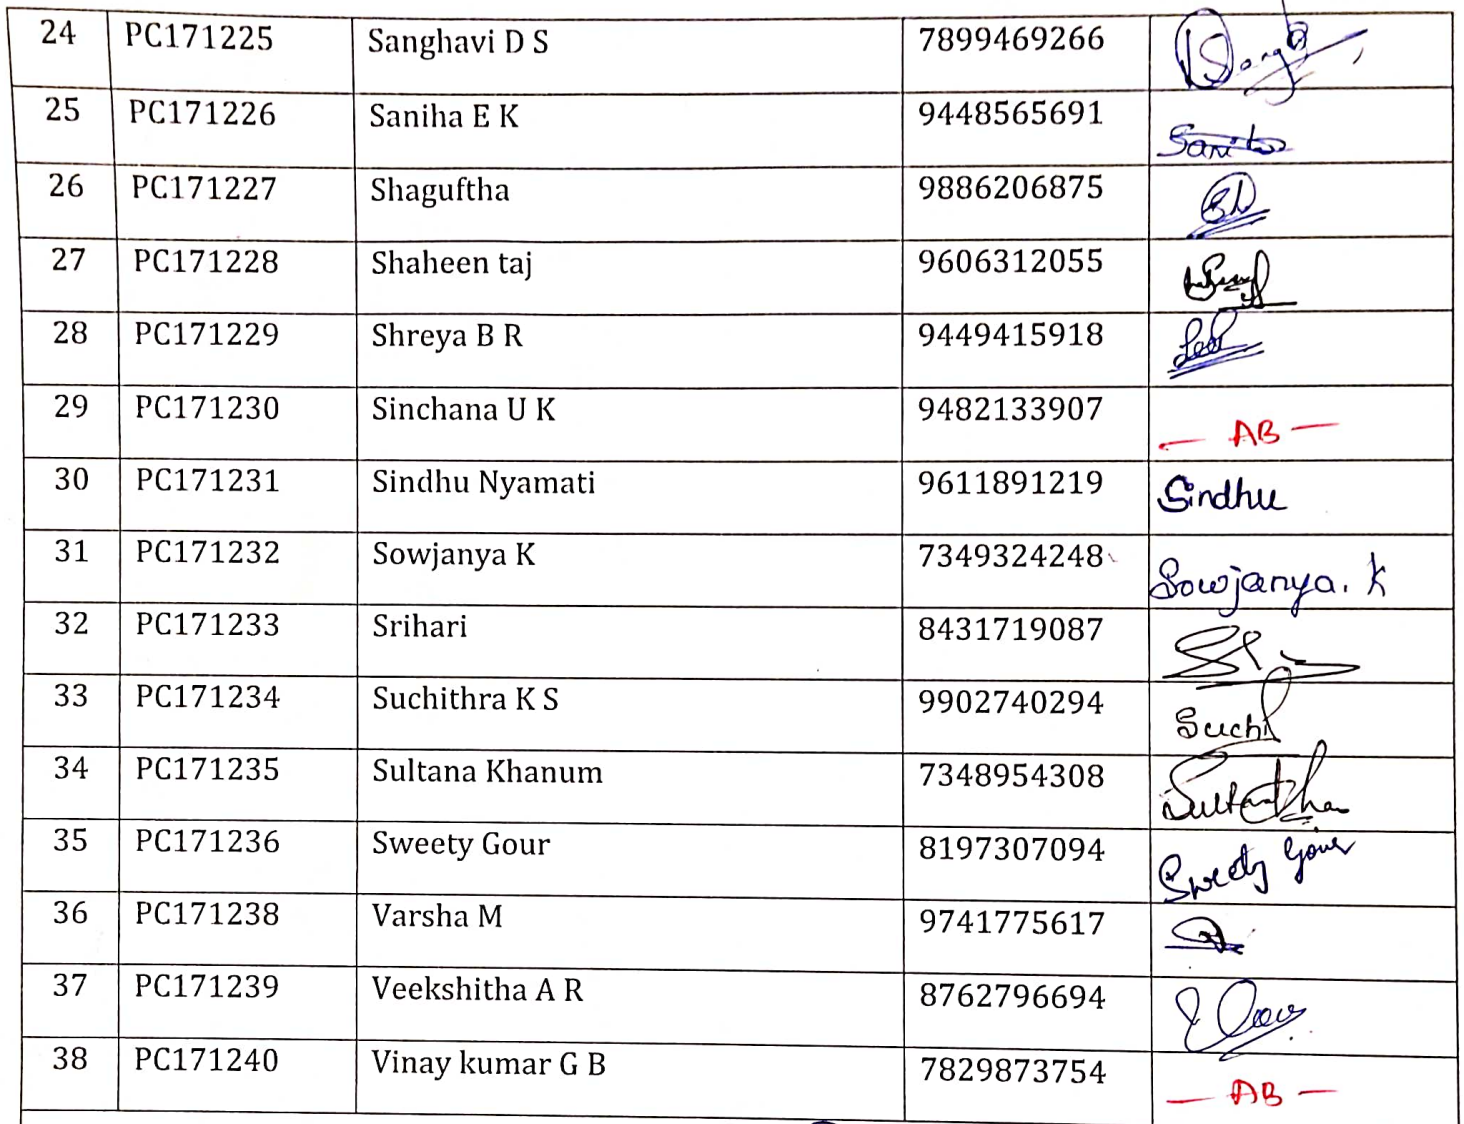 24 PC171225 Sanghavi D S 7899469266
25 PC171226 Saniha E K 9448565691
26 PC171227 Shaguftha 9886206875
27 PC171228 Shaheen taj 9606312055
28 PC171229 Shreya B R 9449415918
29 PC171230 Sinchana U K 9482133907 — AB —
30 PC171231 Sindhu Nyamati 9611891219 Sindhu
31 PC171232 Sowjanya K 7349324248 Sowjanya. K
32 PC171233 Srihari 8431719087
33 PC171234 Suchithra K S 9902740294 Suchi
34 PC171235 Sultana Khanum 7348954308
35 PC171236 Sweety Gour 8197307094 Sweety Gour
36 PC171238 Varsha M 9741775617
37 PC171239 Veekshitha A R 8762796694
38 PC171240 Vinay kumar G B 7829873754 — AB —